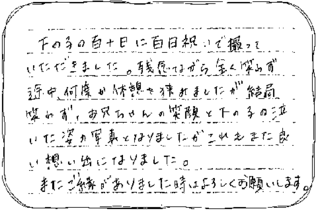 下の子の百十日に百日祝いで撮って
いただきました。残念ながら全く笑わず
途中、何度か休憩を挟みましたが結局
笑わず、お兄ちゃんの笑顔と下の子の泣
いた姿の写真となりましたがこれもまた良
い想い出になりました。
またご縁がありました時はよろしくお願いします。